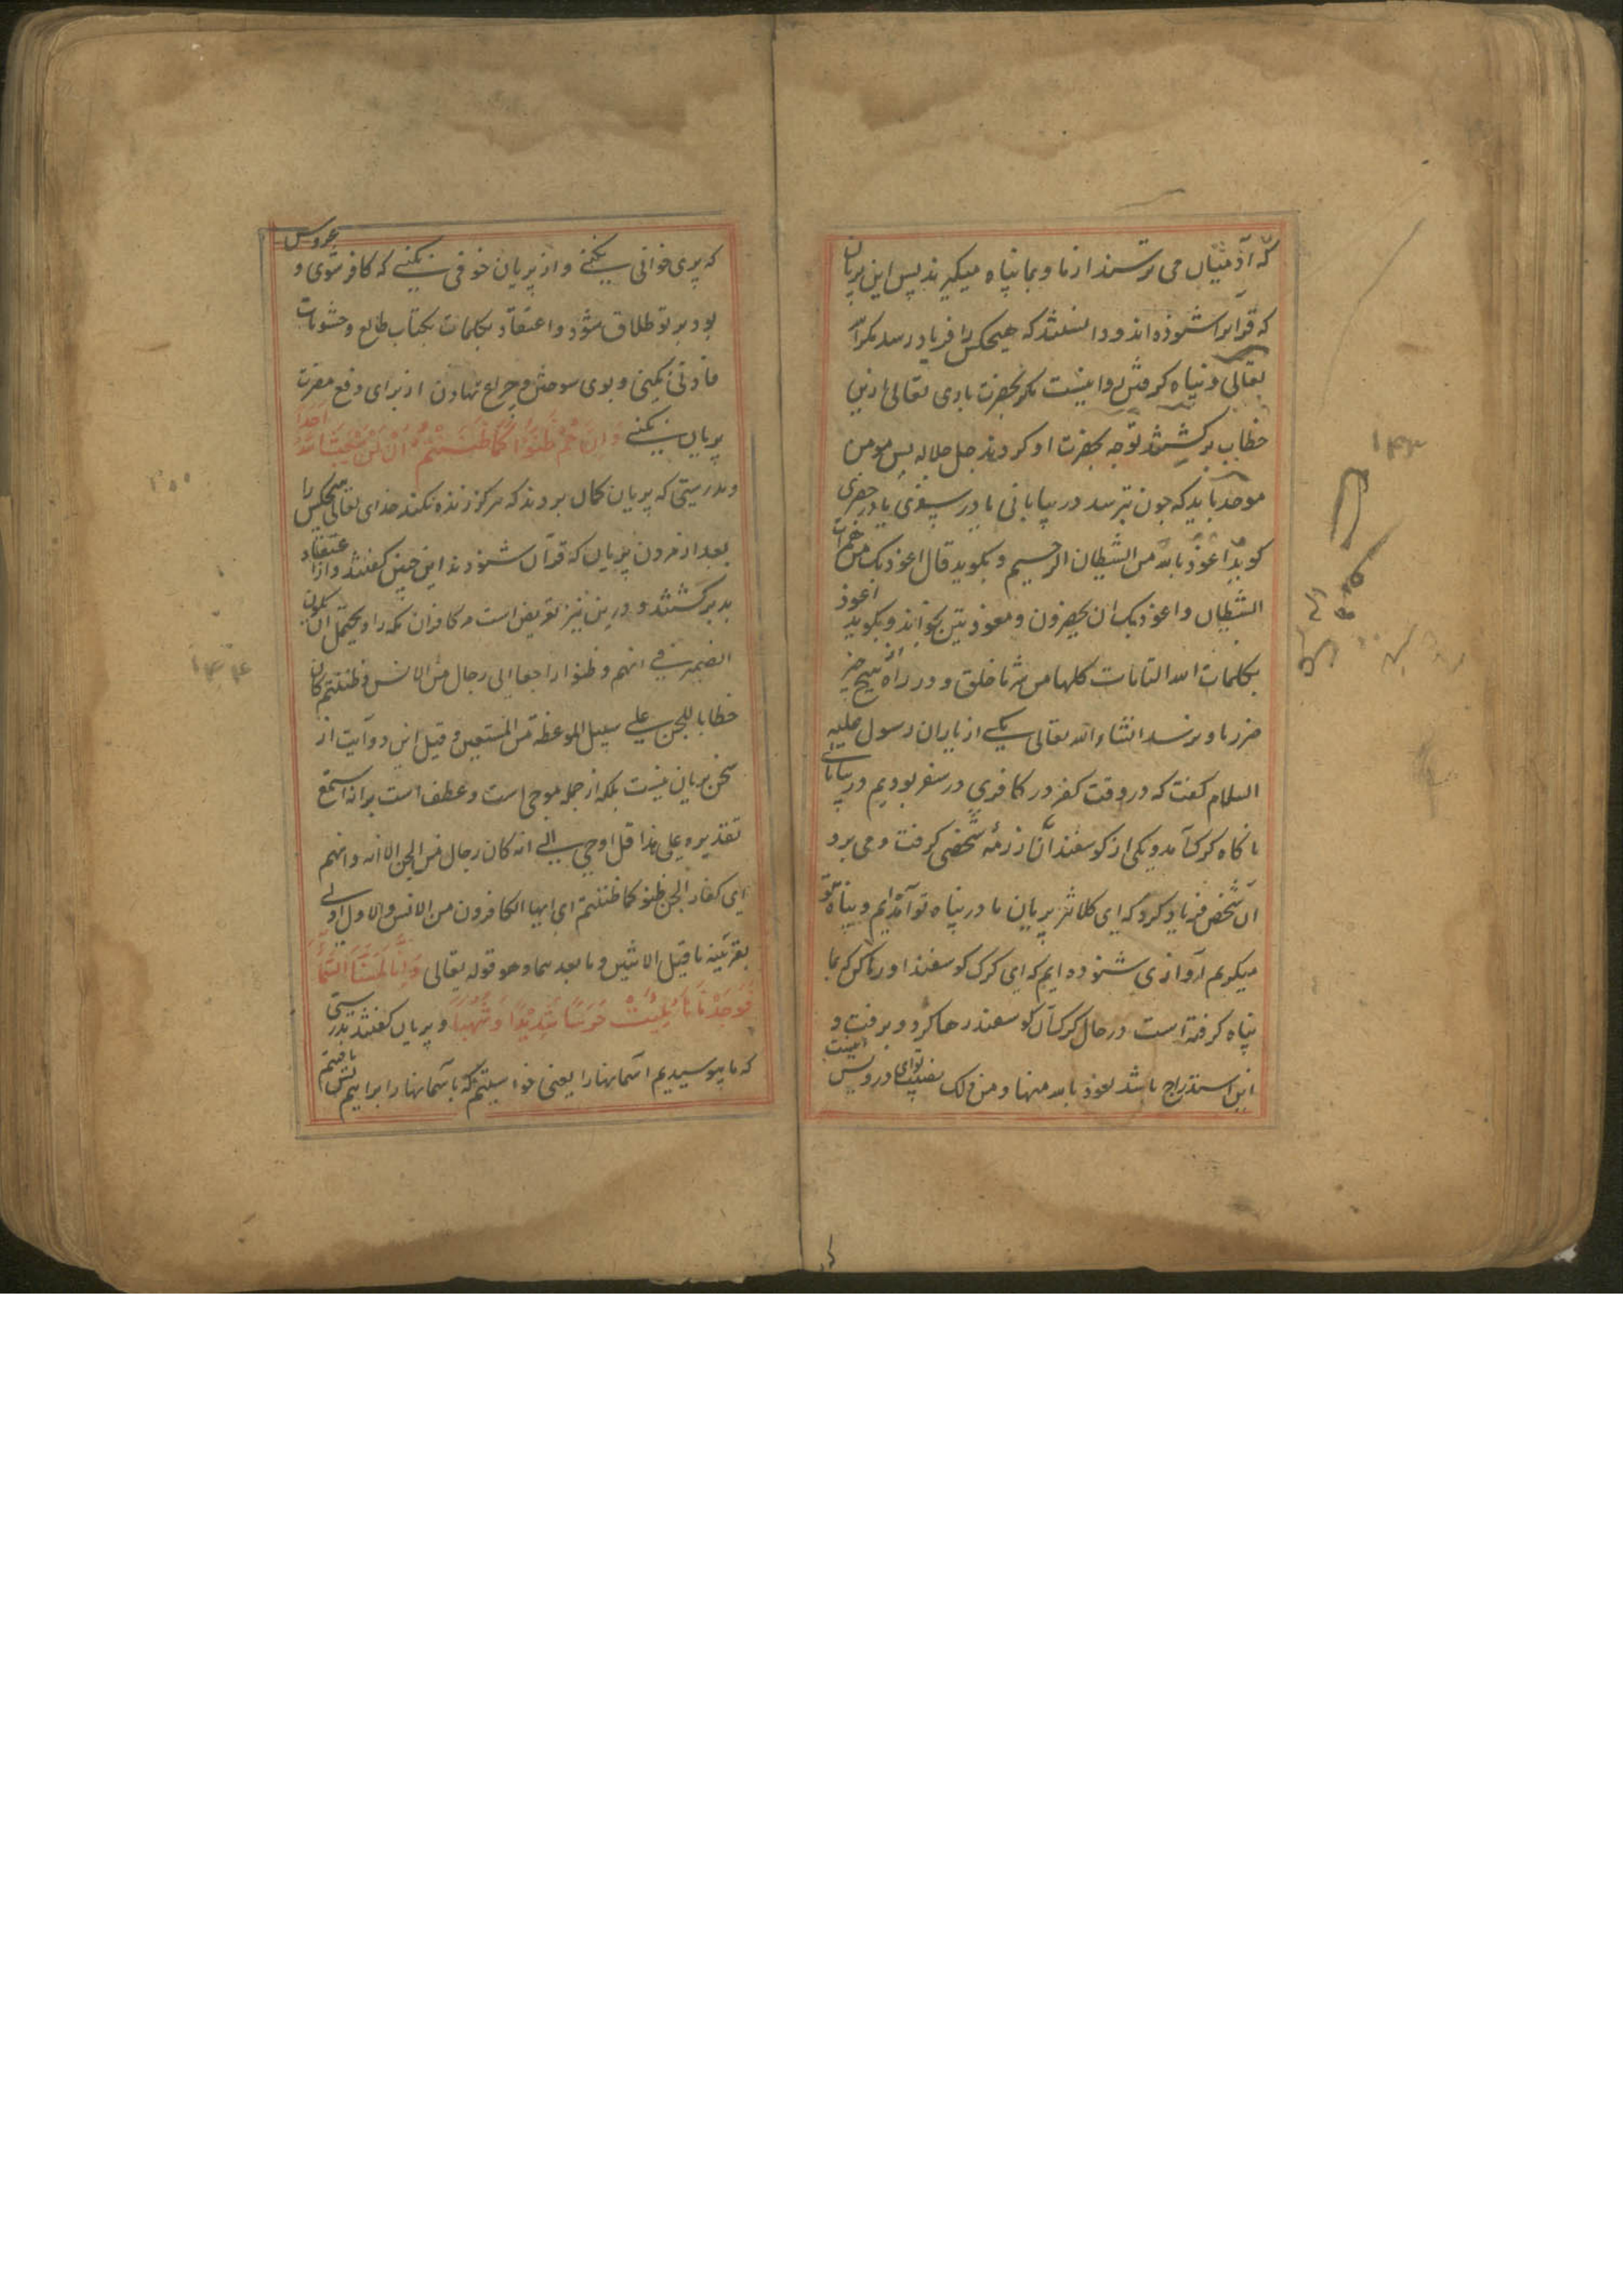 که آدمیان می ترسند از ما و بما پناه میگیرند پس این پریان
که قرآنرا شنوده اند و دانستند که هیچکس را فریاد رسد مگر الله
تعالی و پناه گرفتن روا نیست مگر بحضرت باری تعالی ازین
خطاب برگشتند توجه بحضرت او کردند جل جلاله پس مومن
موحد باید که چون بترسد در بیابانی یا در سفری یا در حضری
گوید اعوذ بالله من الشیطان الرجیم و بگوید قال اعوذ بک من همزات
الشیطان و اعوذ بک ان یحضرون و معوذتین بخواند و بگوید اعوذ
بکلمات الله التامات کلها من شر ما خلق و در راه هیچ
ضرر باو نرسد انشاء الله تعالی یکی از یاران رسول علیه
السلام گفت که در وقت کفر در کافری در سفر بودیم در بیابانی
ناگاه گرگ آمد و یکی از گوسفندان از رمه شخصی گرفت و می برد
آن شخص فریاد کرد که ای کلانتر پریان ما در پناه تو آمده ایم و بپناه تو
میگویم آوازی شنوده ایم که ای گرگ گوسفند او رها کن که بما
پناه گرفته است در حال گرگ آن گوسفند رها کرد و برفت و
این استدراج باشد نعوذ بالله منها و من ذلک نصیب تو ای درویش اینست
که پری خوانی نکنی و از پریان خوفی نکنی که کافر شوی و عروس
بود بر تو طلاق شود و اعتقاد بکلمات بکتاب طالع و حشویات
نکنی و بوی سوختن و چراغ نهادن از برای دفع مضرت
پریان نکنی وَاَنَّهُمْ ظَنُّوا كَمَا ظَنَنْتُمْ اَنْ لَنْ يَبْعَثَ اللهُ اَحَدًا
و بدرستی که پریان گمان بردند که هرگز زنده نکند خدای تعالی هیچکس را
بعد از مردن پریان که قرآن شنودند این چنین گفتند و از اعتقاد
بد برگشتند و درین نیز تعریض است مر کافران مکه را و یحتمل ان یکون
الضمیر فی انهم و ظنوا راجعا الی رجال من الانس و ظننتم کان
خطابا للجن علی سبیل الموعظة من المستمعین و قیل این دو آیت از
سخن پریان نیست بلکه از جمله موحی است و عطف است بر انه استمع
تقدیره علی هذا قل اوحی الی انه کان رجال من الجن الا انه و انهم
ای کفار الجن ظنوا کما ظننتم ای ایها الکافرون من الانس و الاول اولی
بقرینه ما قبل الاثنین و ما بعدهما و هو قوله تعالی وَاَنَّا لَمَسْنَا السَّمَاءَ
فَوَجَدْنَاهَا مُلِئَتْ حَرَسًا شَدِيدًا وَشُهُبًا و پریان گفتند بدرستی
که ما بپوسیدیم آسمانها را یعنی خواستیم که بآسمانها برآییم پس یافتیم